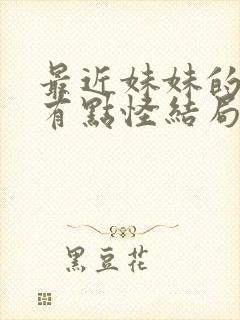 最近妹妹的
有點怪結局
黑豆花